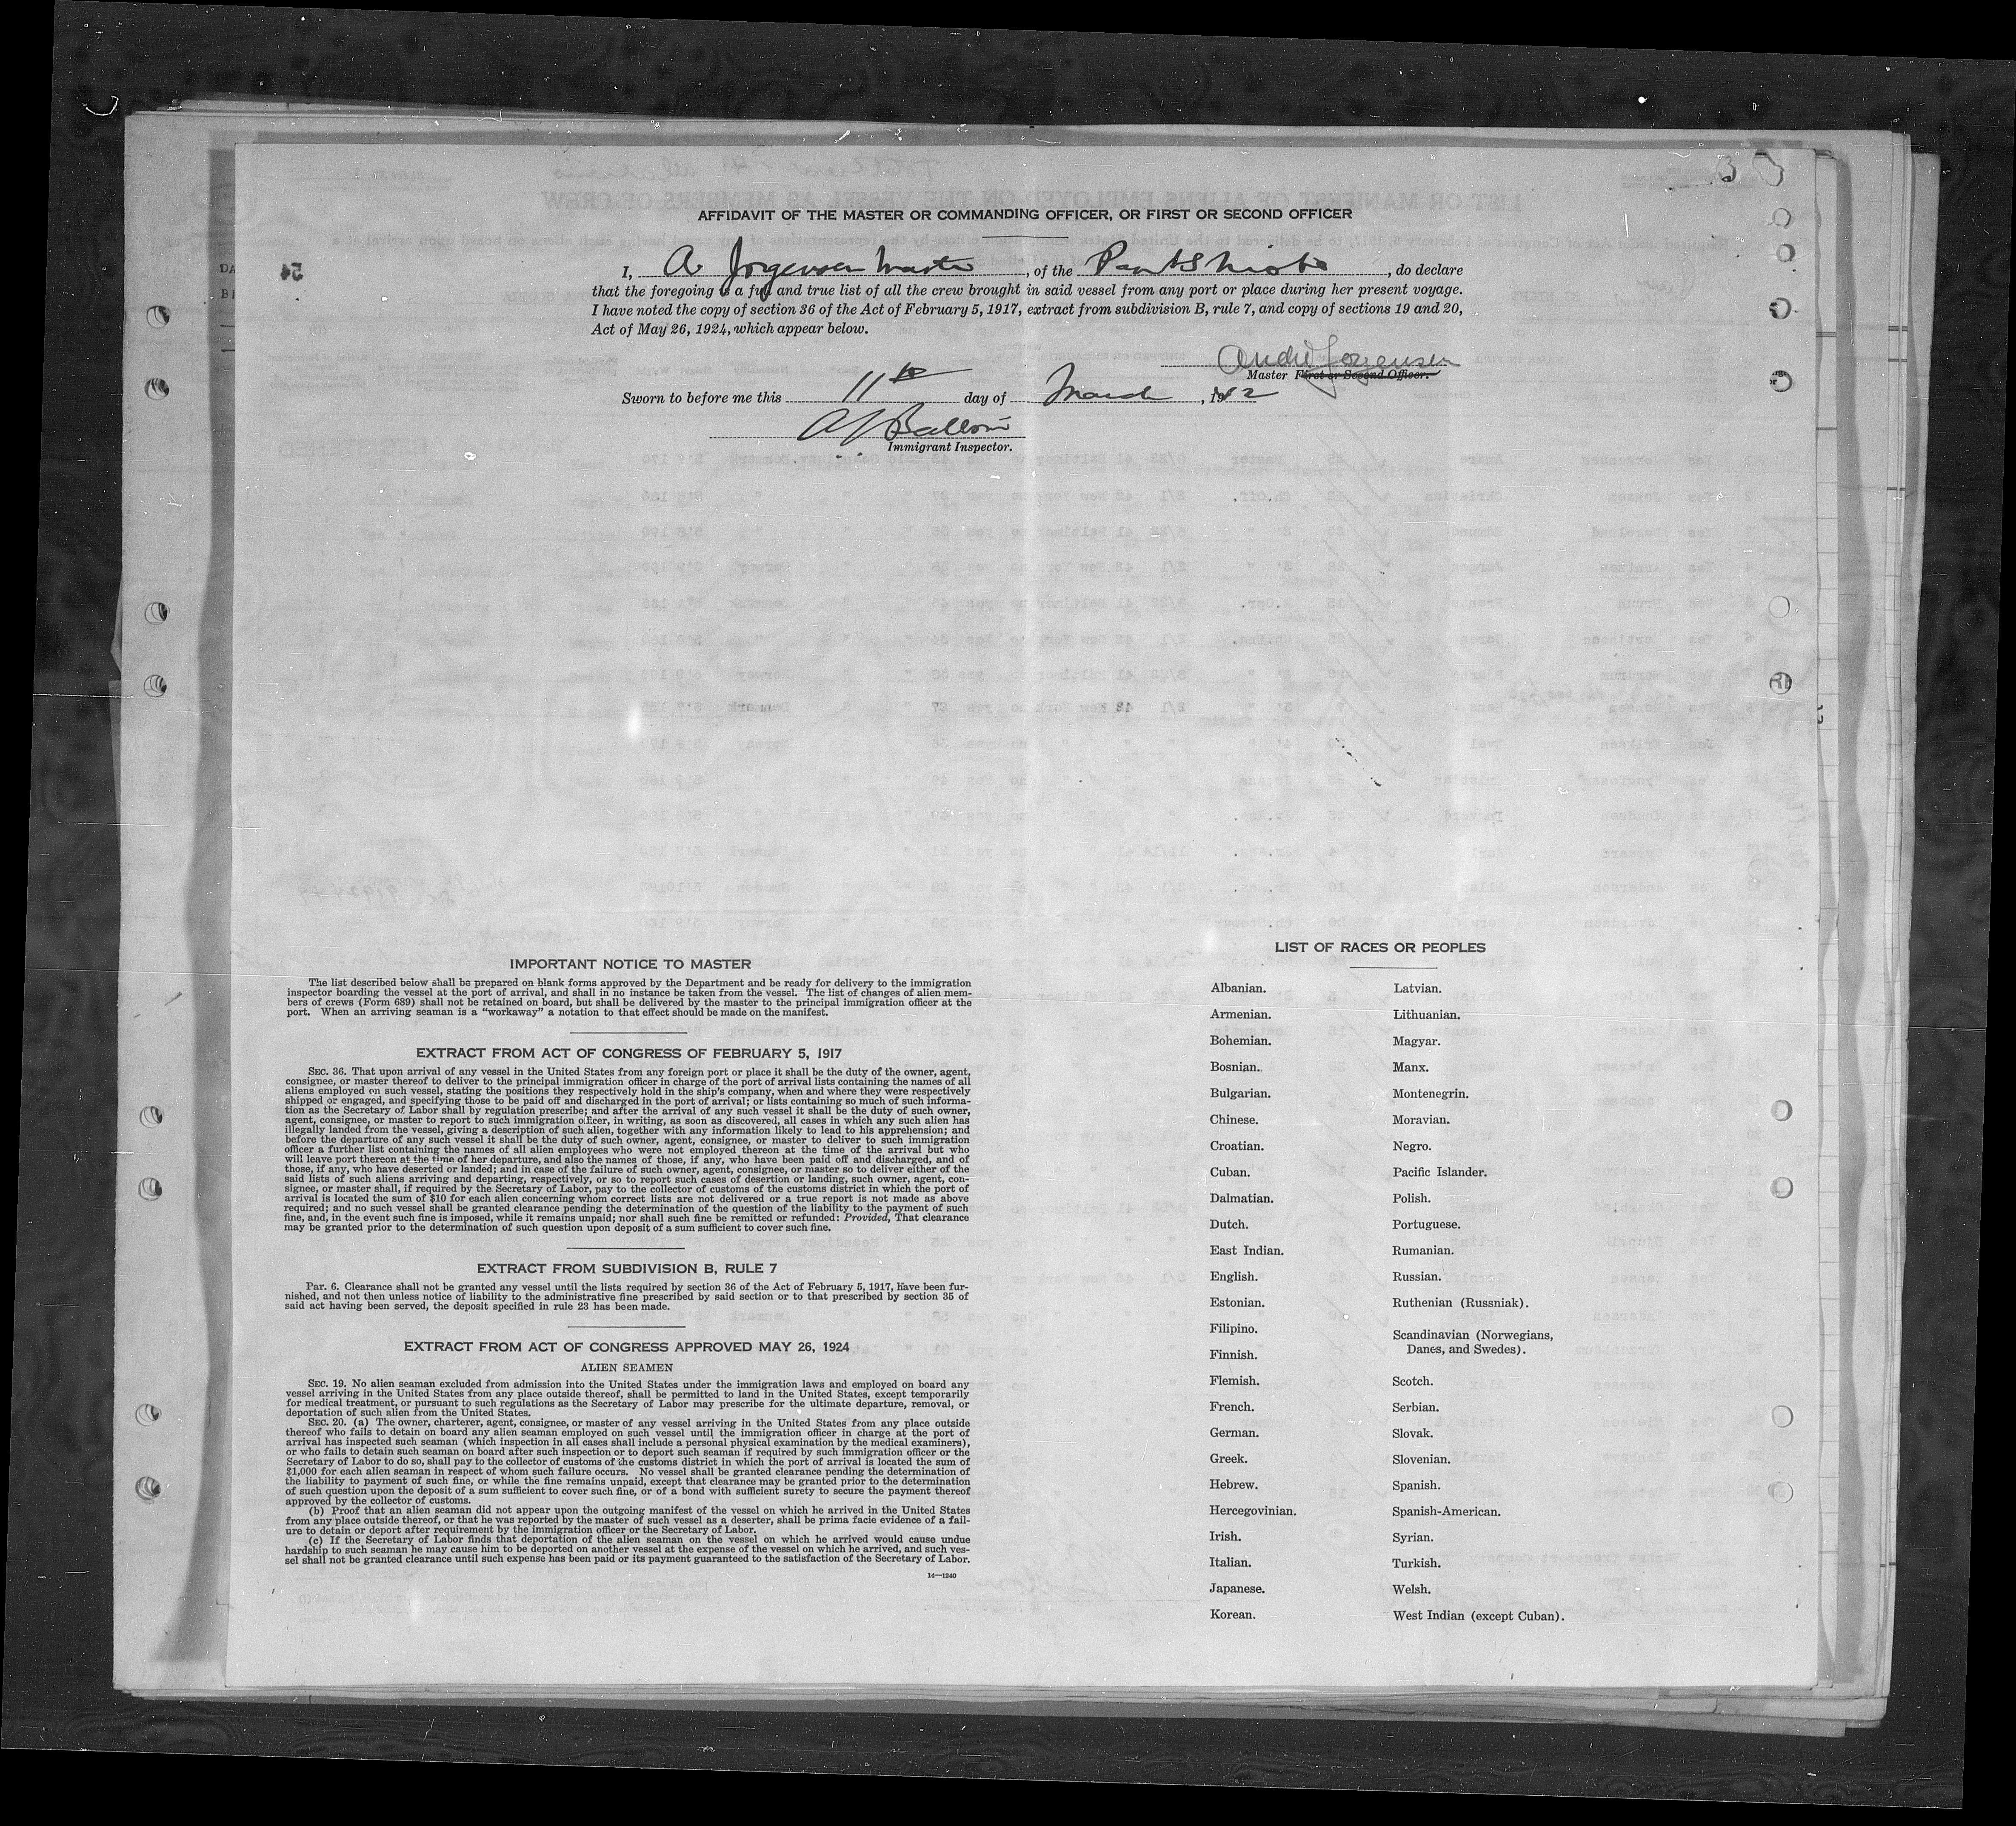 AFFIDAVIT OF THE MASTER OR COMMANDING OFFICER, OR FIRST OR SECOND OFFICER
I, A. Jorgensen Master, of the, do declare
that the foregoing is a full and true list of all the crew brought in said vessel from any port or place during her present voyage.
I have noted the copy of section 36 of the Act of February 5, 1917, extract from subdivision B, rule 7, and copy of sections 19 and 20,
Act of May 26, 1924, which appear below.
André Jorgensen
Master First or Second Officer.
Sworn to before me this 11th day of March, 1942
Immigrant Inspector.
IMPORTANT NOTICE TO MASTER
The list described below shall be prepared on blank forms approved by the Department and be ready for delivery to the immigration
inspector boarding the vessel at the port of arrival, and shall in no instance be taken from the vessel. The list of changes of alien mem-
bers of crews (Form 689) shall not be retained on board, but shall be delivered by the master to the principal immigration officer at the
port. When an arriving seaman is a "workaway" a notation to that effect should be made on the manifest.
EXTRACT FROM ACT OF CONGRESS OF FEBRUARY 5, 1917
SEC. 36. That upon arrival of any vessel in the United States from any foreign port or place it shall be the duty of the owner, agent,
consignee, or master thereof to deliver to the principal immigration officer in charge of the port of arrival lists containing the names of all
aliens employed on such vessel, stating the positions they respectively hold in the ship's company, when and where they were respectively
shipped or engaged, and specifying those to be paid off and discharged in the port of arrival; or lists containing so much of such informa-
tion as the Secretary of Labor shall by regulation prescribe; and after the arrival of any such vessel it shall be the duty of such owner,
agent, consignee, or master to report to such immigration officer, in writing, as soon as discovered, all cases in which any such alien has
illegally landed from the vessel, giving a description of such alien, together with any information likely to lead to his apprehension; and
before the departure of any such vessel it shall be the duty of such owner, agent, consignee, or master to deliver to such immigration
officer a further list containing the names of all alien employees who were not employed thereon at the time of the arrival but who
will leave port thereon at the time of her departure, and also the names of those, if any, who have been paid off and discharged, and of
those, if any, who have deserted or landed; and in case of the failure of such owner, agent, consignee, or master so to deliver either of the
said lists of such aliens arriving and departing, respectively, or so to report such cases of desertion or landing, such owner, agent, con-
signee, or master shall, if required by the Secretary of Labor, pay to the collector of customs of the customs district in which the port of
arrival is located the sum of $10 for each alien concerning whom correct lists are not delivered or a true report is not made as above
required; and no such vessel shall be granted clearance pending the determination of the question of the liability to the payment of such
fine, and, in the event such fine is imposed, while it remains unpaid; nor shall such fine be remitted or refunded: Provided, That clearance
may be granted prior to the determination of such question upon deposit of a sum sufficient to cover such fine.
EXTRACT FROM SUBDIVISION B, RULE 7
Par. 6. Clearance shall not be granted any vessel until the lists required by section 36 of the Act of February 5, 1917, have been fur-
nished, and not then unless notice of liability to the administrative fine prescribed by said section or to that prescribed by section 35 of
said act having been served, the deposit specified in rule 23 has been made.
EXTRACT FROM ACT OF CONGRESS APPROVED MAY 26, 1924
ALIEN SEAMEN
SEC. 19. No alien seaman excluded from admission into the United States under the immigration laws and employed on board any
vessel arriving in the United States from any place outside thereof, shall be permitted to land in the United States, except temporarily
for medical treatment, or pursuant to such regulations as the Secretary of Labor may prescribe for the ultimate departure, removal, or
deportation of such alien from the United States.
SEC. 20. (a) The owner, charterer, agent, consignee, or master of any vessel arriving in the United States from any place outside
thereof who fails to detain on board any alien seaman employed on such vessel until the immigration officer in charge at the port of
arrival has inspected such seaman (which inspection in all cases shall include a personal physical examination by the medical examiners),
or who fails to detain such seaman on board after such inspection or to deport such seaman if required by such immigration officer or the
Secretary of Labor to do so, shall pay to the collector of customs of the customs district in which the port of arrival is located the sum of
$1,000 for each alien seaman in respect of whom such failure occurs. No vessel shall be granted clearance pending the determination of
the liability to payment of such fine, or while the fine remains unpaid, except that clearance may be granted prior to the determination
of such question upon the deposit of a sum sufficient to cover such fine, or of a bond with sufficient surety to secure the payment thereof
approved by the collector of customs.
(b) Proof that an alien seaman did not appear upon the outgoing manifest of the vessel on which he arrived in the United States
from any place outside thereof, or that he was reported by the master of such vessel as a deserter, shall be prima facie evidence of a fail-
ure to detain or deport after requirement by the immigration officer or the Secretary of Labor.
(c) If the Secretary of Labor finds that deportation of the alien seaman on the vessel on which he arrived would cause undue
hardship to such seaman he may cause him to be deported on another vessel at the expense of the vessel on which he arrived, and such ves-
sel shall not be granted clearance until such expense has been paid or its payment guaranteed to the satisfaction of the Secretary of Labor.
14—1240
LIST OF RACES OR PEOPLES
Albanian.
Armenian.
Bohemian.
Bosnian.
Bulgarian.
Chinese.
Croatian.
Cuban.
Dalmatian.
Dutch.
East Indian.
English.
Estonian.
Filipino.
Finnish.
Flemish.
French.
German.
Greek.
Hebrew.
Hercegovinian.
Irish.
Italian.
Japanese.
Korean.
Latvian.
Lithuanian.
Magyar.
Manx.
Montenegrin.
Moravian.
Negro.
Pacific Islander.
Polish.
Portuguese.
Rumanian.
Russian.
Ruthenian (Russniak).
Scandinavian (Norwegians,
Danes, and Swedes).
Scotch.
Serbian.
Slovak.
Slovenian.
Spanish.
Spanish-American.
Syrian.
Turkish.
Welsh.
West Indian (except Cuban).